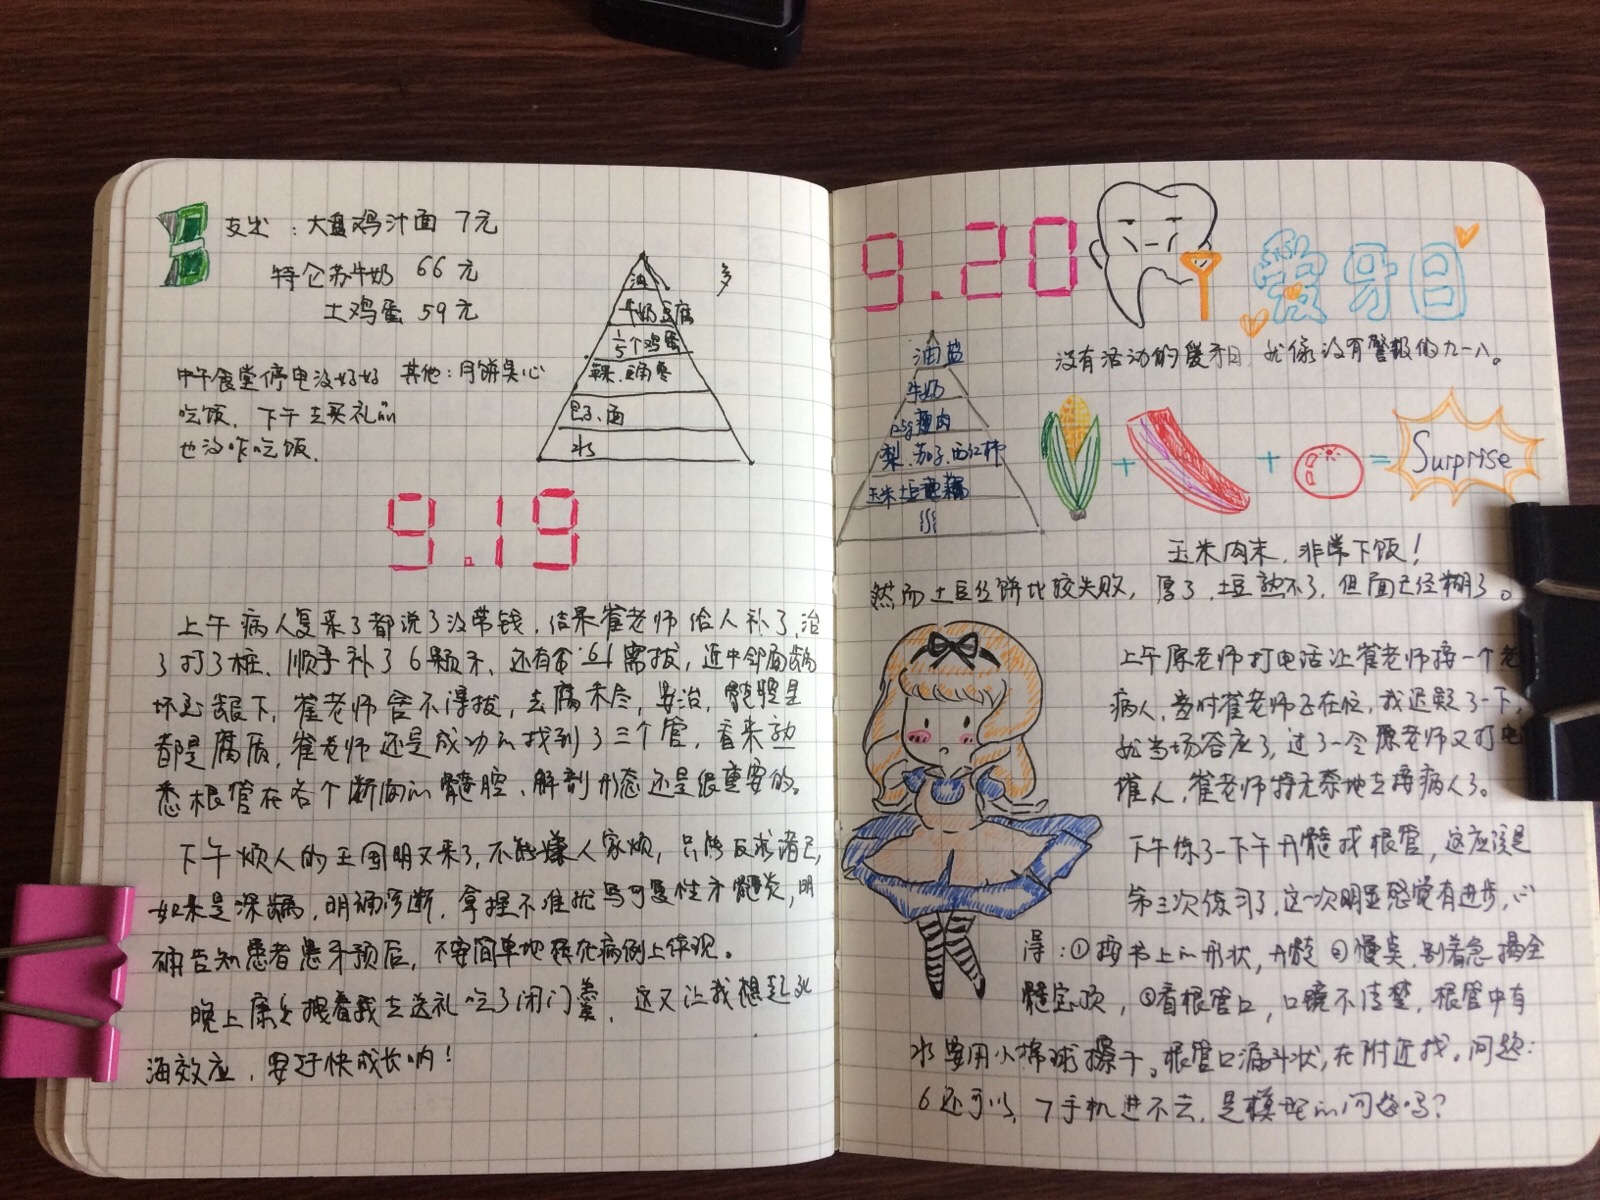 支出：大盘鸡汁面 7元
特仑苏牛奶 66元
土鸡蛋 59元
中午食堂停电没好好
吃饭，下午去买礼品
也没咋吃饭，
其他：月饼点心
油
牛奶豆腐
个鸡蛋
水
9.19
上午病人复来了都说了没带钱，结果崔老师给人补了，治
了打了桩，顺手补了6颗牙，还有 需拔，近中邻面龋
坏至龈下，崔老师舍不得拔，去腐未尽，要治，髓腔里
都是腐质，崔老师还是成功的找到了三个管，看来熟
悉根管在各个断面的髓腔、解剖形态还是很重要的。
下午烦人的王国明又来了，不能嫌人家烦，只能反求诸己，
如果是深龋，明确诊断，拿捏不准就写可复性牙髓炎，明
确告知患者患牙预后，不要简单地 病例上体现。
晚上 拽着我去送礼吃了闭门羹，这又让我想起
海效应，要好快成长哟！
9.20
爱牙日
没有活动的爱牙日，就像没有警报的九一八。
油盐
牛奶
25g瘦肉
梨、茄子、西红柿
玉米土豆
+ + = Surprise
玉米肉末，非常下饭！
然而土豆丝饼比较失败，厚了，土豆熟不了，但面已经糊了。
上午原老师打电话让崔老师接一个老
病人，当时崔老师正在忙，我迟疑了一下，
就当场答应了，过了一会原老师又打电
催人，崔老师特无奈地去接病人了。
下午练了一下午开髓找根管，这应该是
第三次练习了，这一次明显感觉有进步，心
得：①按书上的形状，开髓②慢点，别着急揭全
髓室顶，③看根管口，口镜不清楚，根管中有
水要用小棉球擦干。根管口漏斗状，在附近找。问题：
6还可以，7手机进不去，是模型的问题吗？